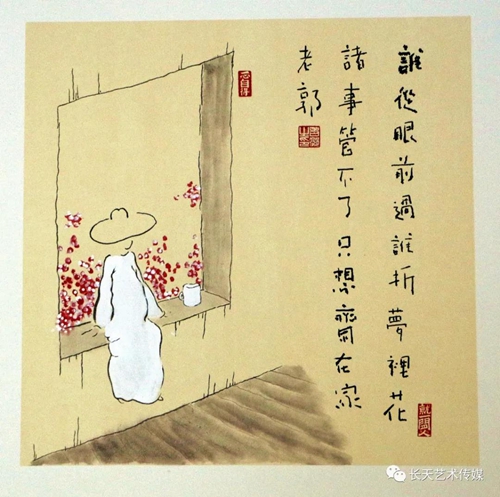 誰從眼前過誰折夢裡花
諸事管不了只想窩在家
老郭
长天艺术传媒